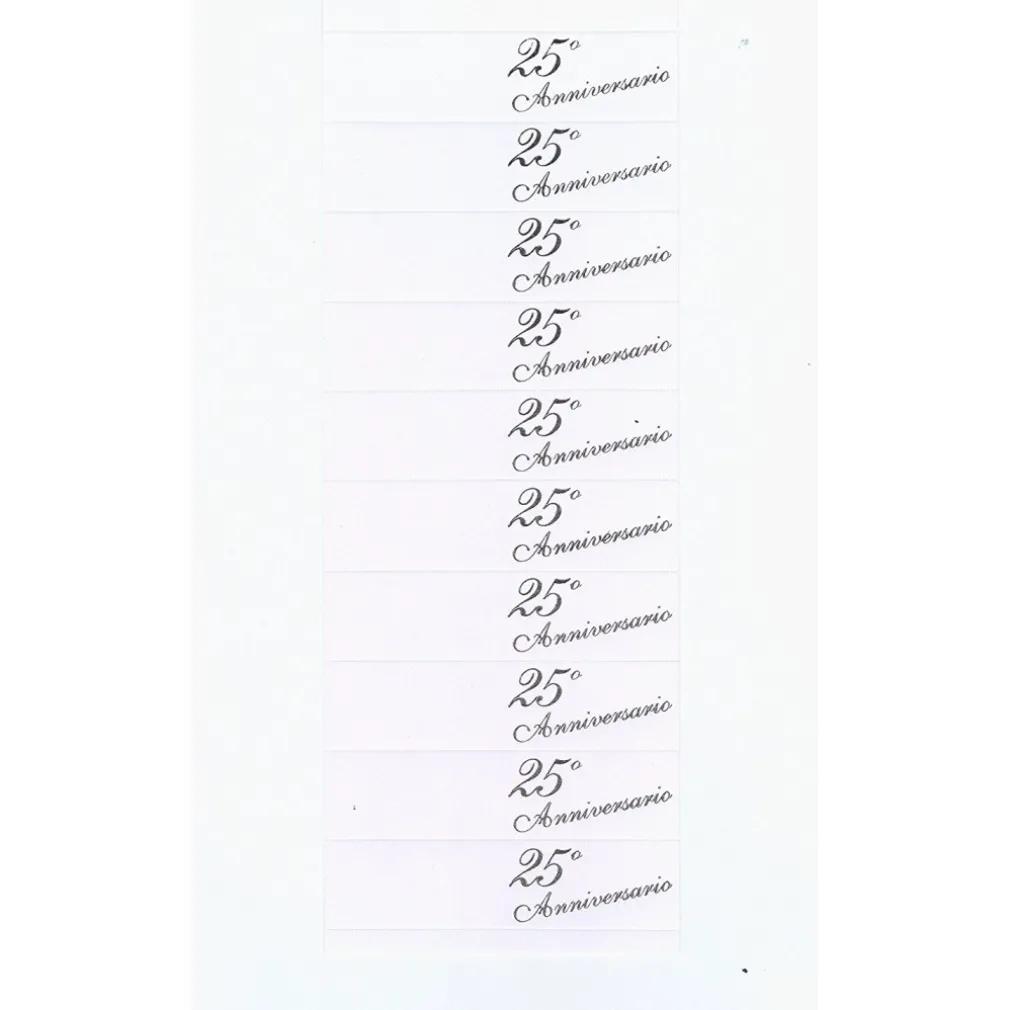 25º
Anniversario
25º
Anniversario
25º
Anniversario
25º
Anniversario
25º
Anniversario
25º
Anniversario
25º
Anniversario
25º
Anniversario
25º
Anniversario
25º
Anniversario